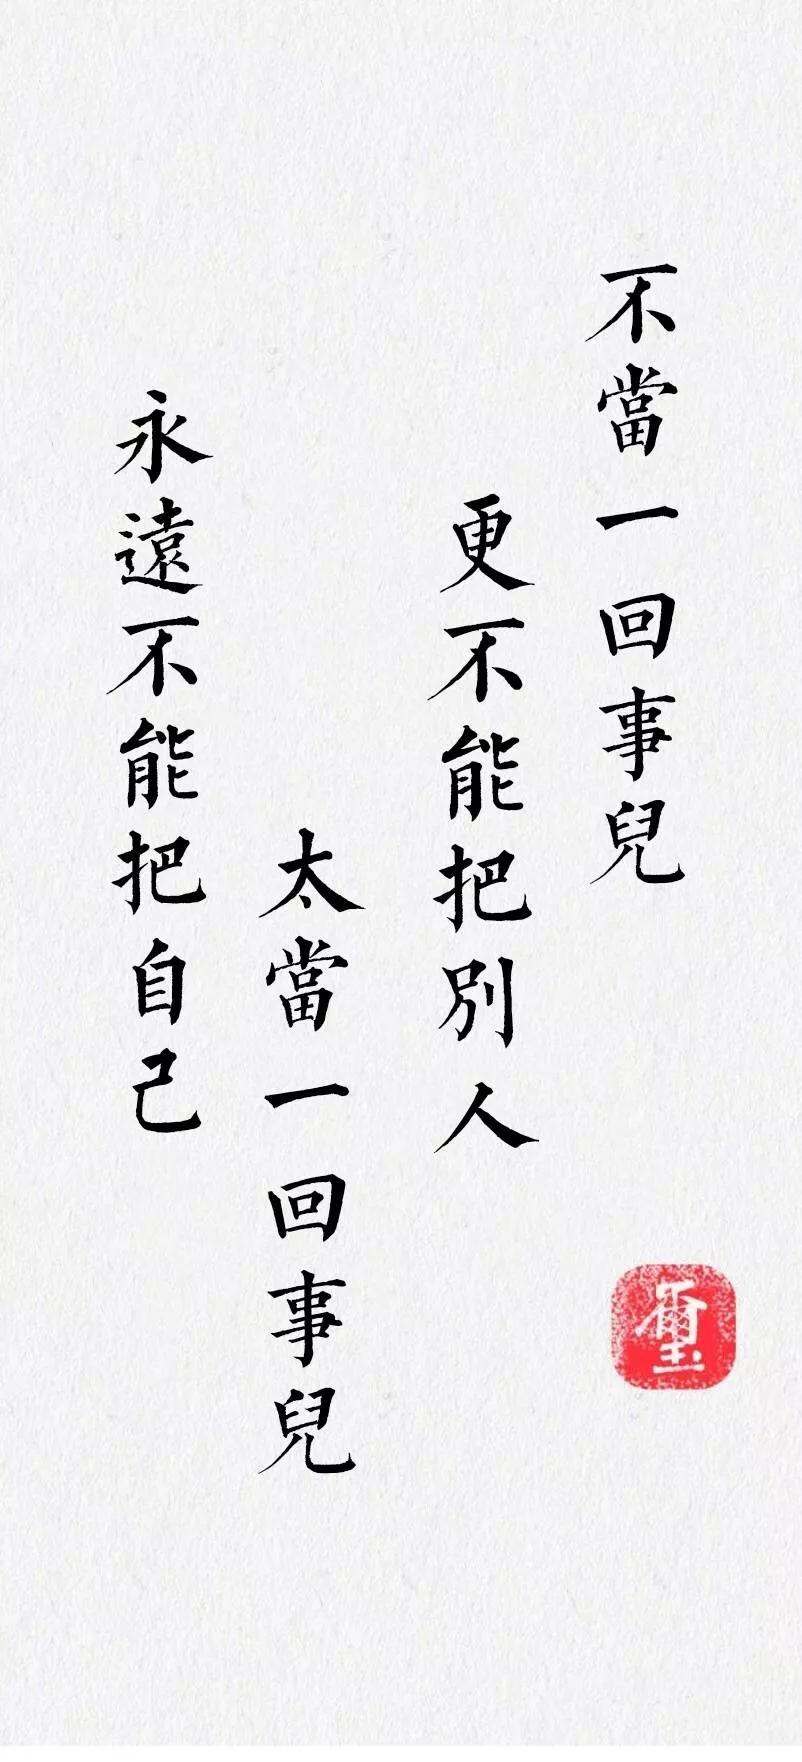 永遠不能把自己
太當一回事兒
更不能把別人
不當一回事兒
璽